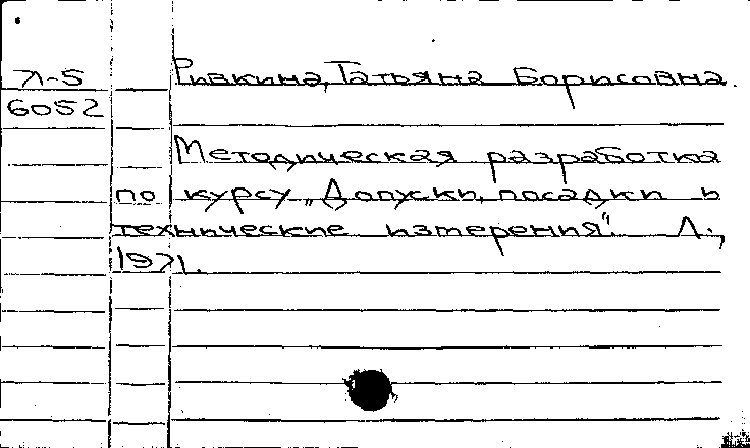 Л-5
6052
Ривкина, Татьяна Борисовна.
Методическая разработка
по курсу „Допуски, посадки и
технические измерения". Л.,
1971.